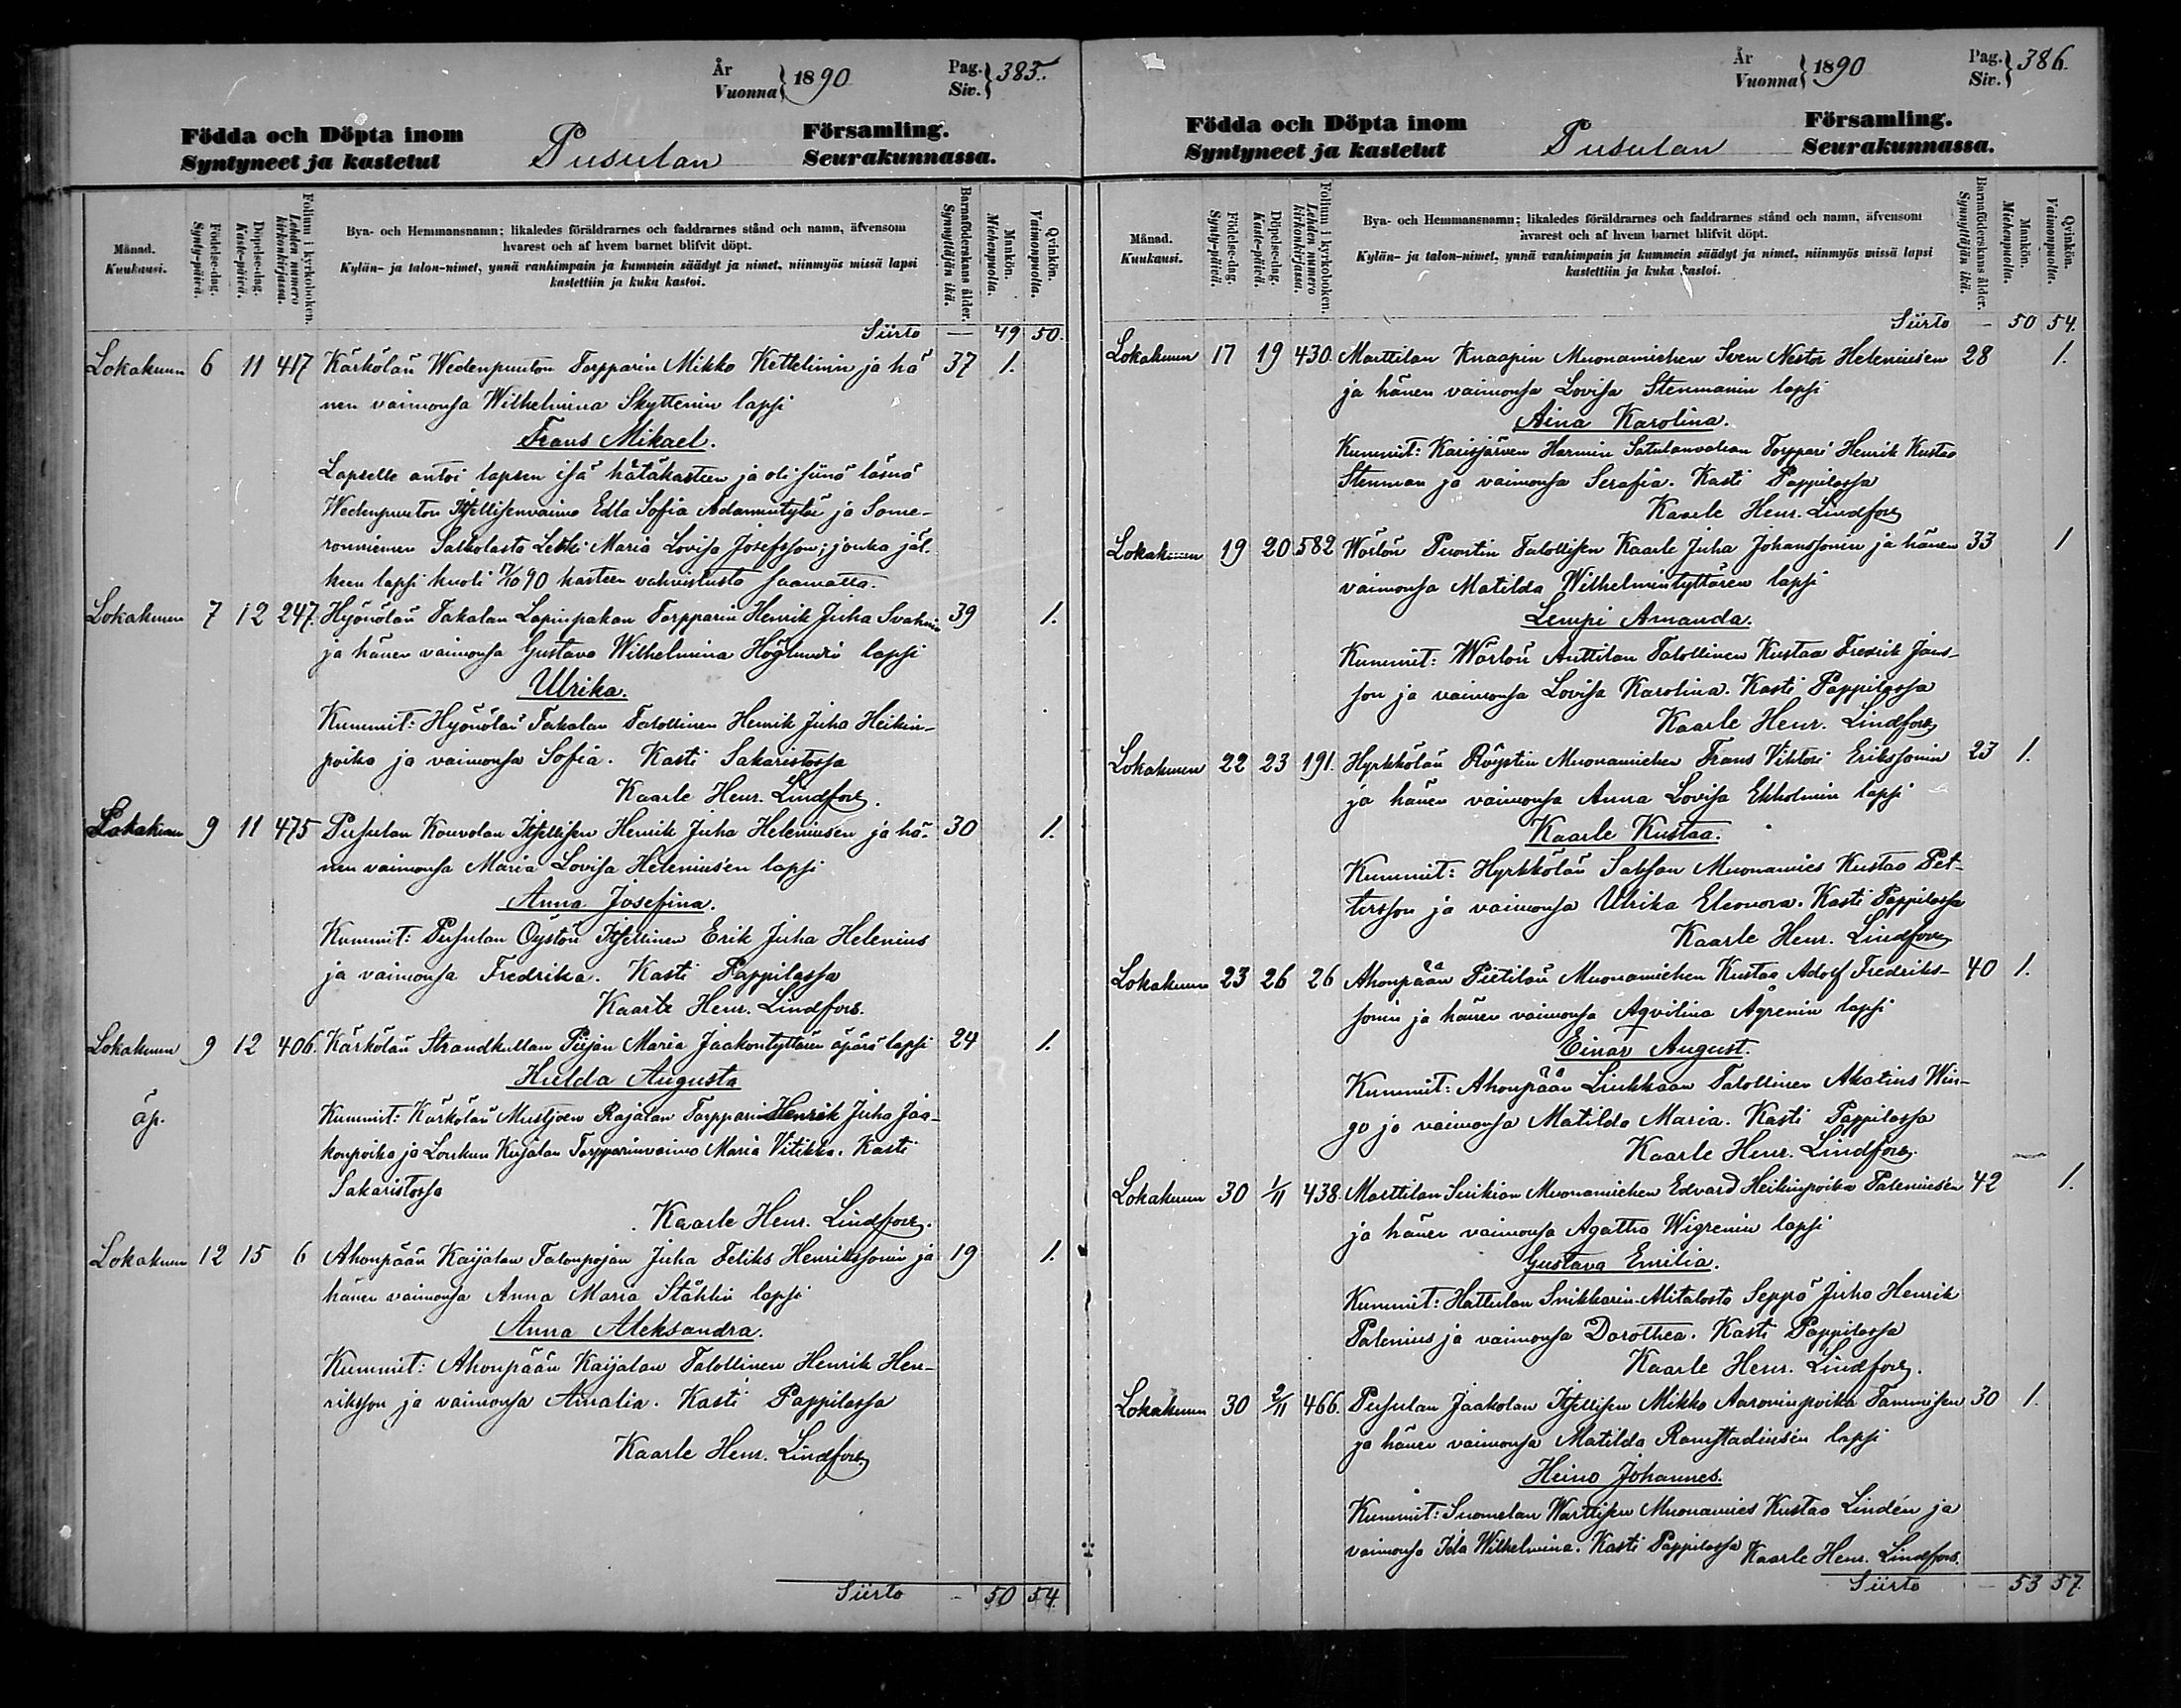 År
Vuonna } 1890
Pag.
Siv. } 385.
Födda och Döpta inom
Syntyneet ja kastetut
Pusulan
Församling.
Seurakunnassa.
Månad.
Kuukausi.
Födelse-dag.
Synty-päivä.
Döpelse-dag.
Kaste-päivä.
Folium i kyrkoboken.
Lehden numero
kirkonkirjassa.
Bya- och Hemmansnamn; likaledes föräldrarnes och faddrarnes stånd och namn, äfvensom
hvarest och af hvem barnet blifvit döpt.
Kylän- ja talon-nimet, ynnä vanhimpain ja kummein säädyt ja nimet, niinmyös missä lapsi
kastettiin ja kuka kastoi.
Barnaföderskans ålder.
Synnyttäjän ikä.
Mankön.
Miehenpuolta.
Qvinkön.
Vaimonpuolta.
Siirto — 49 50.
Lokakuun 6 11 417 Kärkölän Wedenpuuton Torpparin Mikko Kettelinin ja hä 37 1.
nen vaimonsa Wilhelmina Skyttenin lapsi
Frans Mikael.
Lapselle antoi lapsen isä hätäkasteen ja oli siinä läsnä
Wedenpuuton Itsellisenvaimo Edla Sofia Adamintytär ja Some-
ronniemen Salkolasta Leski Maria Lovisa Josefsson; jonka jäl.
keen lapsi kuoli 17/10 90 kasteen vahvistusta saamatta.
Lokakuun 7 12 247. Hyönölän Takalan Lapinpakan Torpparin Henrik Juha Svahnin 39 1.
ja hänen vaimonsa Gustava Wilhelmina Höglundin lapsi
Ulrika.
Kummit: Hyönölän Takalan Talollinen Henrik Juha Heikin-
poika ja vaimonsa Sofia. Kasti Sakaristossa
Kaarle Henr. Lindfors.
Lokakuun 9 11 475 Pusulan Kouvolan Itsellisen Henrik Juha Heleniusen ja hä- 30 1.
nen vaimonsa Maria Lovisa Heleniusén lapsi
Anna Josefina.
Kummit: Pusulan Öystön Itsellinen Erik Juha Helenius
ja vaimonsa Fredrika. Kasti Pappilassa
Kaarle Henr. Lindfors.
Lokakuun 9 12 406. Kärkölän Strandkullan Piijan Maria Jaakontyttären äpärä lapsi 24 1.
Hulda Augusta
äp.
Kummit: Kärkölän Mustjoen Rajalan Torppari Henrik Juha Jaa-
konpoika ja Loukun Kujalan Torpparinvaimo Maria Vitikka. Kasti
Sakaristossa
Kaarle Henr. Lindfors.
Lokakuun 12 15 6 Ahonpään Kaijalan Talonpojan Juha Feliks Henrikssonin ja 19 1.
hänen vaimonsa Anna Maria Ståhlin lapsi
Anna Aleksandra.
Kummit: Ahonpään Kaijalan Talollinen Henrik Hen-
riksson ja vaimonsa Amalia. Kasti Pappilassa
Kaarle Henr. Lindfors
Siirto - 50 54.
År
Vuonna } 1890
Pag.
Siv. } 386.
Födda och Döpta inom
Syntyneet ja kastetut
Pusulan
Församling.
Seurakunnassa.
Månad.
Kuukausi.
Födelse-dag.
Synty-päivä.
Döpelse-dag.
Kaste-päivä.
Folium i kyrkoboken.
Lehden numero
kirkonkirjassa.
Bya- och Hemmansnamn; likaledes föräldrarnes och faddrarnes stånd och namn, äfvensom
hvarest och af hvem barnet blifvit döpt.
Kylän- ja talon-nimet, ynnä vanhimpain ja kummein säädyt ja nimet, niinmyös missä lapsi
kastettiin ja kuka kastoi.
Barnaföderskans ålder.
Synnyttäjän ikä.
Mankön.
Miehenpuolta.
Qvinkön.
Vaimonpuolta.
Siirto — 50 54.
Lokakuun 17 19 430. Marttilan Knaapin Muonamiehen Sven Nestor Heleniusen 28 1.
ja hänen vaimonsa Lovisa Stenmanin lapsi
Aina Karolina.
Kummit: Karisjärven Harmin Torppari Henrik Kustaa
Stenman ja vaimonsa Serafia. Kasti Pappilassa
Kaarle Henr. Lindfors
Lokakuun 19 20 582 Wörlön Puontin Talollisen Kaarle Juha Johanssonin ja hänen 33 1
vaimonsa Matilda Wilhelmintyttären lapsi
Lempi Amanda.
Kummit: Wörlön Anttilan Talollinen Kustaa Fredrik Jans-
son ja vaimonsa Lovisa Karolina. Kasti Pappilassa
Kaarle Henr. Lindfors
Lokakuun 22 23 191. Hyrkkölän Röystin Muonamiehen Frans Viktor Erikssonin 23 1.
ja hänen vaimonsa Anna Lovisa Ekholmin lapsi
Kaarle Kustaa.
Kummit: Hyrkkölän Muonamies Kustaa Pet-
tersson ja vaimonsa Ulrika Eleonora. Kasti Pappilassa
Kaarle Henr. Lindfors
Lokakuun 23 26 26 Ahonpään Pietilän Muonamiehen Kustaa Adolf Fredriks- 40 1.
sonin ja hänen vaimonsa Aqvilina Ågrenin lapsi
Einar August.
Kummit: Ahonpään Liukkaan Talollinen Akatius Win-
go ja vaimonsa Matilda Maria. Kasti Pappilassa
Kaarle Henr. Lindfors.
Lokakuun 30 1/11 438. Marttilan Muonamiehen Edvard Heikinpoika Paleniusén 42 1.
ja hänen vaimonsa Agatha Wigrenin lapsi
Gustava Emilia.
Kummit: Hattulan Snikkarin-Alitalosta Seppä Juha Henrik
Palenius ja vaimonsa Dorothea. Kasti Pappilassa
Kaarle Henr. Lindfors.
Lokakuun 30 2/11 466. Pusulan Jaakolan Itsellisen Mikko Aaroninpoika Tammisen 30 1.
ja hänen vaimonsa Matilda Ramstadiusén lapsi
Heino Johannes.
Kummit: Suomelan Warttisen Muonamies Kustaa Lindén ja
vaimonsa Ida Wilhelmina. Kasti Pappilassa Kaarle Henr. Lindfors.
Siirto — 53 57.